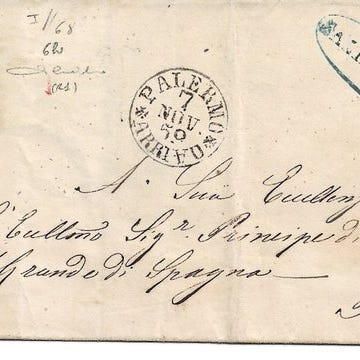 I // 68
62
(R1)
PALERMO
7
NOV.
59
ARRIVO
A Sua Eccellenz
Eccllmo Sigr. Principe d
Grande di Spagna